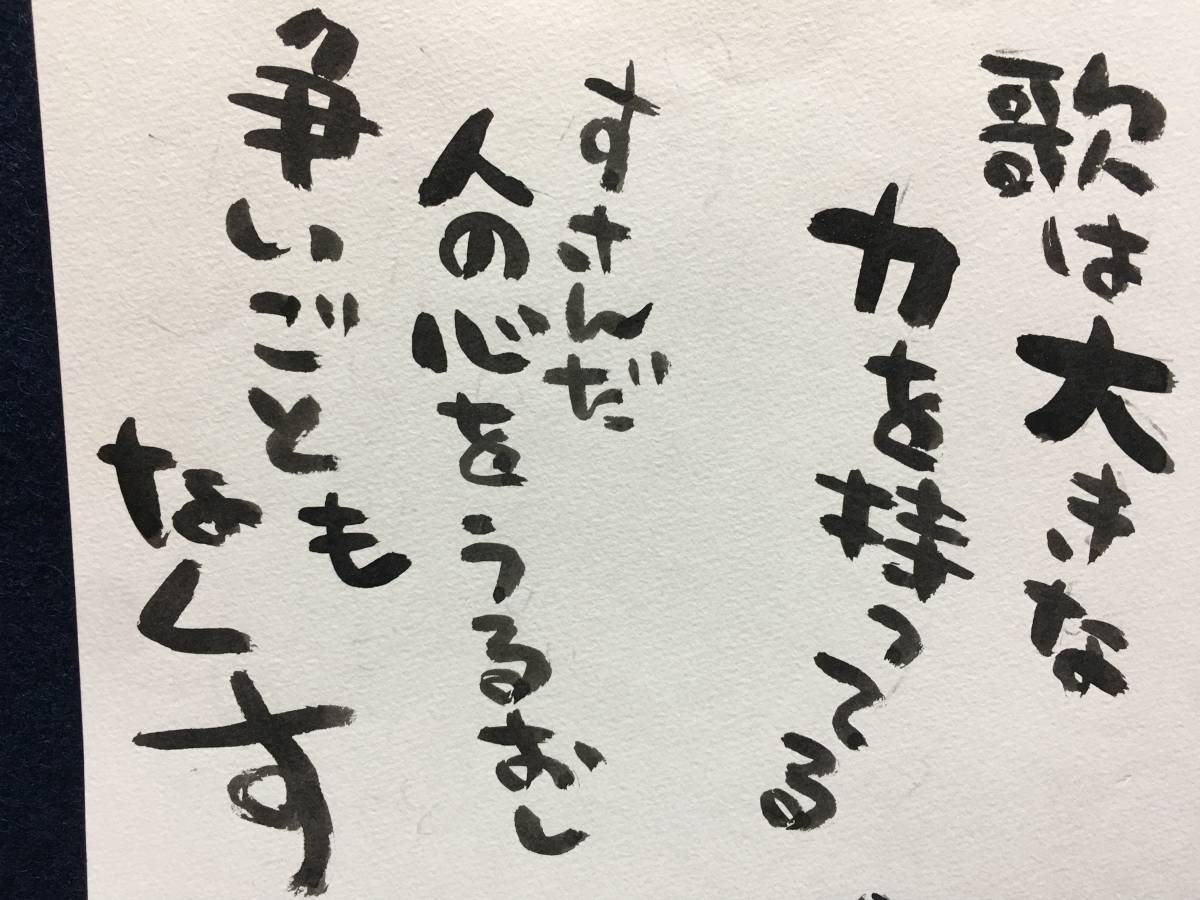 歌は大きな
力を持ってる
すさんだ
人の心をうるおし
争いごとも
なくす